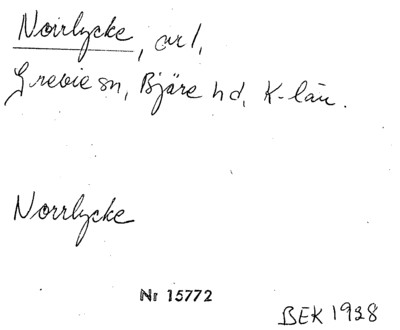 Noirlycke, arl,
Grevie sn, Bjäre hd, K-län.
Norrlycke
Nr 15772
BEK 1928